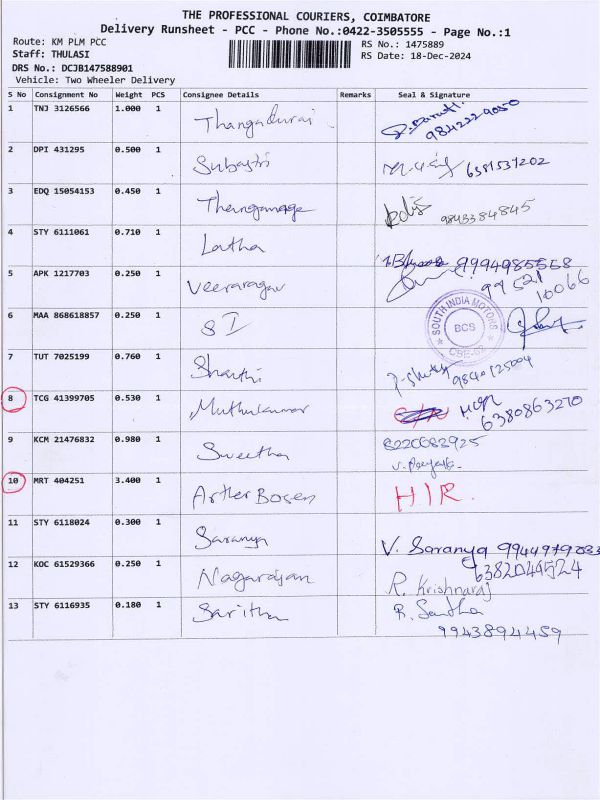 THE PROFESSIONAL COURIERS, COIMBATORE
Delivery Runsheet - PCC - Phone No.:0422-3505555 - Page No.:1
Route: KM PLM PCC
RS No.: 1475889
Staff: THULASI
RS Date: 18-Dec-2024
DRS No.: DCJB147588901
Vehicle: Two Wheeler Delivery
S No Consignment No Weight PCS Consignee Details Remarks Seal & Signature
1 TNJ 3126566 1.000 1 Thangadurai 9842229050
2 DPI 431295 0.500 1 Subastri 6381537202
3 EDQ 15054153 0.450 1 9843384845
4 STY 6111061 0.710 1 Latha 9994985558
5 APK 1217703 0.250 1 Veeraragav 99521
10066
6 MAA 868618857 0.250 1 S I SOUTH INDIA MOTORS BCS CBE-02
7 TUT 7025199 0.760 1 Shanthi 9840125004
8 TCG 41399705 0.530 1 Muthukumar 6380863270
9 KCM 21476832 0.980 1 Swetha 8220682925
10 MRT 404251 3.400 1 Arther Bosen HIR.
11 STY 6118024 0.300 1 Saranya V. Saranya
12 KOC 61529366 0.250 1 Nagarajan 6382049524
R. Krishnaraj
13 STY 6116935 0.180 1 Saritha R. Santha
9943894459